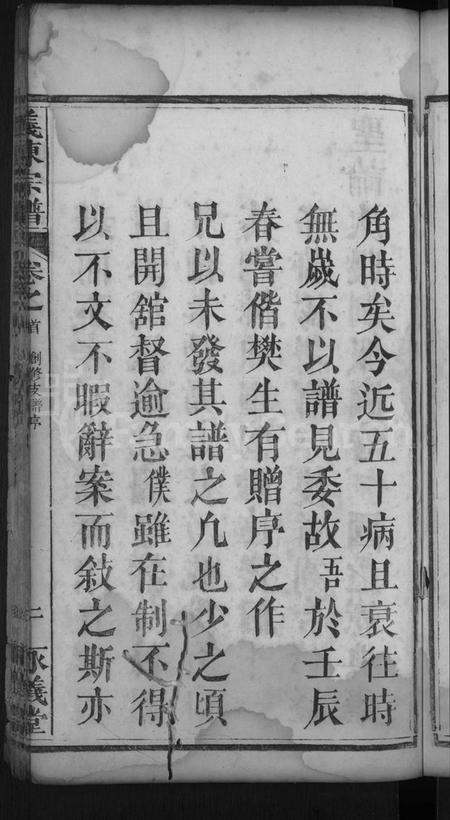 角時矣今近五十病且衰往時
無歲不以譜見委故吾於壬辰
春嘗偕樊生有贈序之作
兄以未發其譜之凡也少之頃
且開舘督逾急僕雖在制不得
以不文不暇辭案而敍之斯亦
義東宗譜 卷之首 創修支譜序 二 承義堂